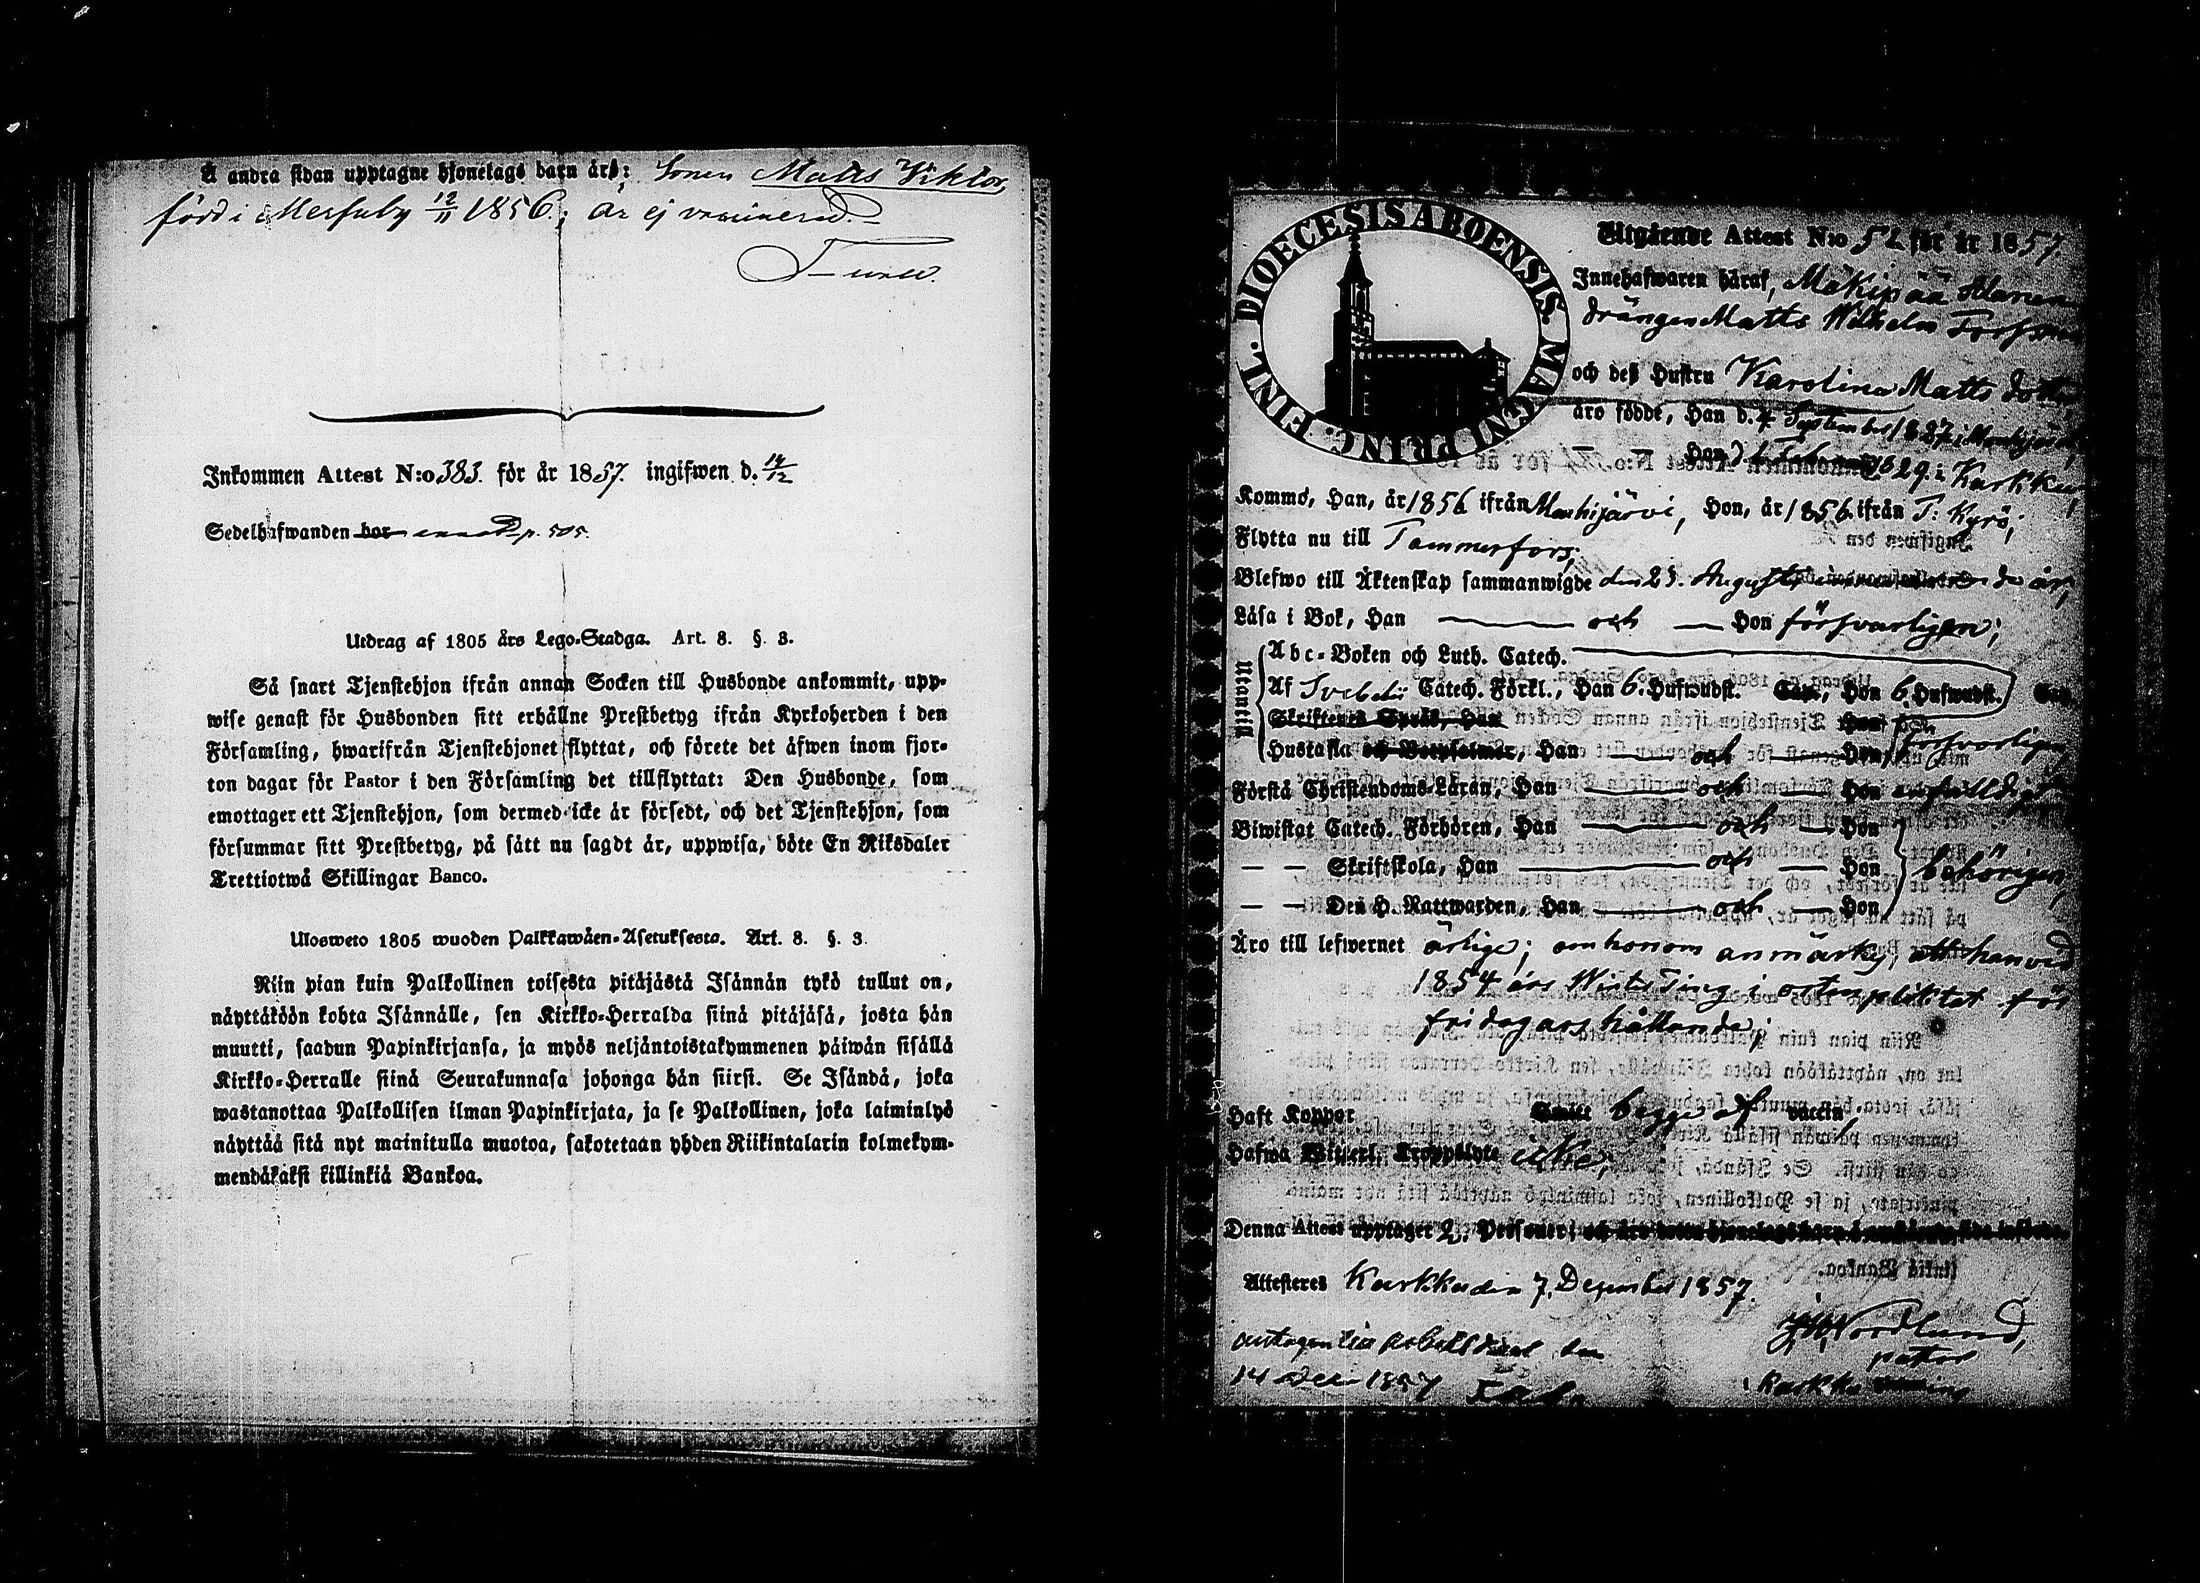 Å andra sidan upptagne hjonelags barn är: Sonen Matts Viktor,
född i Messuby 12/11 1856; är ej vaccinerad.
Inkommen Attest N:o 383. för år 1857. ingifwen d. 14/12
Sedelhafwanden har p. 505.
Utdrag af 1805 års Lego-Stadga. Art. 8. §. 3.
Så snart Tjenstehjon ifrån annan Socken till Husbonde ankommit, upp-
wise genast för Husbonden sitt erhållne Prestbetyg ifrån Kyrkoherden i den
Församling, hwarifrån Tjenstehjonet flyttat, och förete det äfwen inom fjor-
ton dagar för Pastor i den Församling det tillflyttat: Den Husbonde, som
emottager ett Tjenstehjon, som dermed icke är försedt, och det Tjenstehjon, som
försummar sitt Prestbetyg, på sätt nu sagdt är, uppwisa, böte En Riksdaler
Trettiotwå Skillingar Banco.
Ulosweto 1805 wuoden Palkkawäen-Asetuksesta. Art. 8. §. 3.
Niin pian kuin Palkollinen toisesta pitäjästä Isännän tykö tullut on,
näyttäköön kohta Isännälle, sen Kirkko-Herralda siinä pitäjäsä, josta hän
muutti, saadun Papinkirjansa, ja myös neljäntoistakymmenen päiwän sisällä
Kirkko-Herralle siinä Seurakunnasa johonga hän siirsi. Se Isändä, joka
wastanottaa Palkollisen ilman Papinkirjata, ja se Palkollinen, joka laiminlyö
näyttää sitä nyt mainitulla muotoa, sakotetaan yhden Riikintalarin kolmekym-
mendäkaksi killinkiä Bankoa.
DIOECESIS ABOENSIS. MAGNI PRINC. FINL.
Utgående Attest N:o 52 för år 1857.
Innehafwaren häraf, Mäkipää
drängen Matts Wilhelm
och deß Hustru Karolina Matts dotter
äro födde, Han d. 4 September 1827 i Mouhijärvi,
— — Hon d. 1 Februari 1829 i Karkku,
Kommo, Han, år 1856 ifrån Mouhijärvi, Hon, år 1856 ifrån T. Kyrö;
Flytta nu till Tammerfors;
Blefwo till Äktenskap sammanwigde den 23. Augusti år,
Läsa i Bok, Han — och — Hon försvarligen;
Utantill
Abc-Boken och Luth. Catech.
Af Svebelii Catech. Förkl., Han 6. Hufwudst. Cap., Hon 6. Hufwudst. Cap.
Skriftenes Språk, Han Hon
Hustafla och Botpsalmer, Han — och — Hon försvarligen
Förstå Christendoms-Läran, Han — och — Hon enfalldigt
Biwistat Catech. Förhören, Han — och — Hon
— — Skriftskola, Han — och — Hon behörigen,
— — Den H. Nattwarden, Han — och — Hon
Äro till lefwernet ärlige; om honom anmärkes, att han vid
1854 års Winter Ting i ostra pliktat för
fridagars hållande;
Haft Koppor Smitt begge af vaccin;
Hafwa Witterl. Kroppslyte icke;
Denna Attest upptager 2. Personer;
Attesteras Karkku den 7. December 1857.
Nordlund,
pastor
Karkku
antagen
14 Dec. 1857